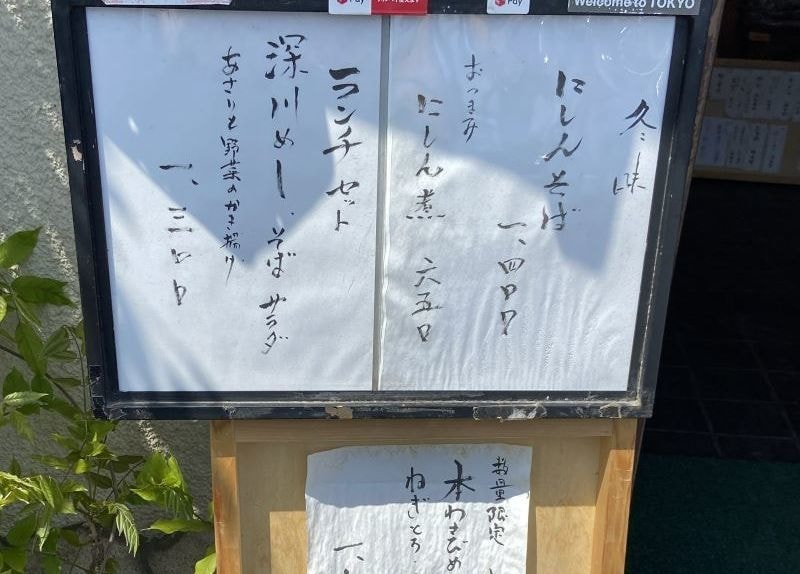 Pay
Pay
Welcome to TOKYO
冬の味
にしんそば
一、四〇〇
おつまみ
にしん煮 六五〇
ランチセット
深川めし、そば サラダ
あさりと野菜のかき揚げ
一、三〇〇
数量限定
本わさびめ
ねぎとろ